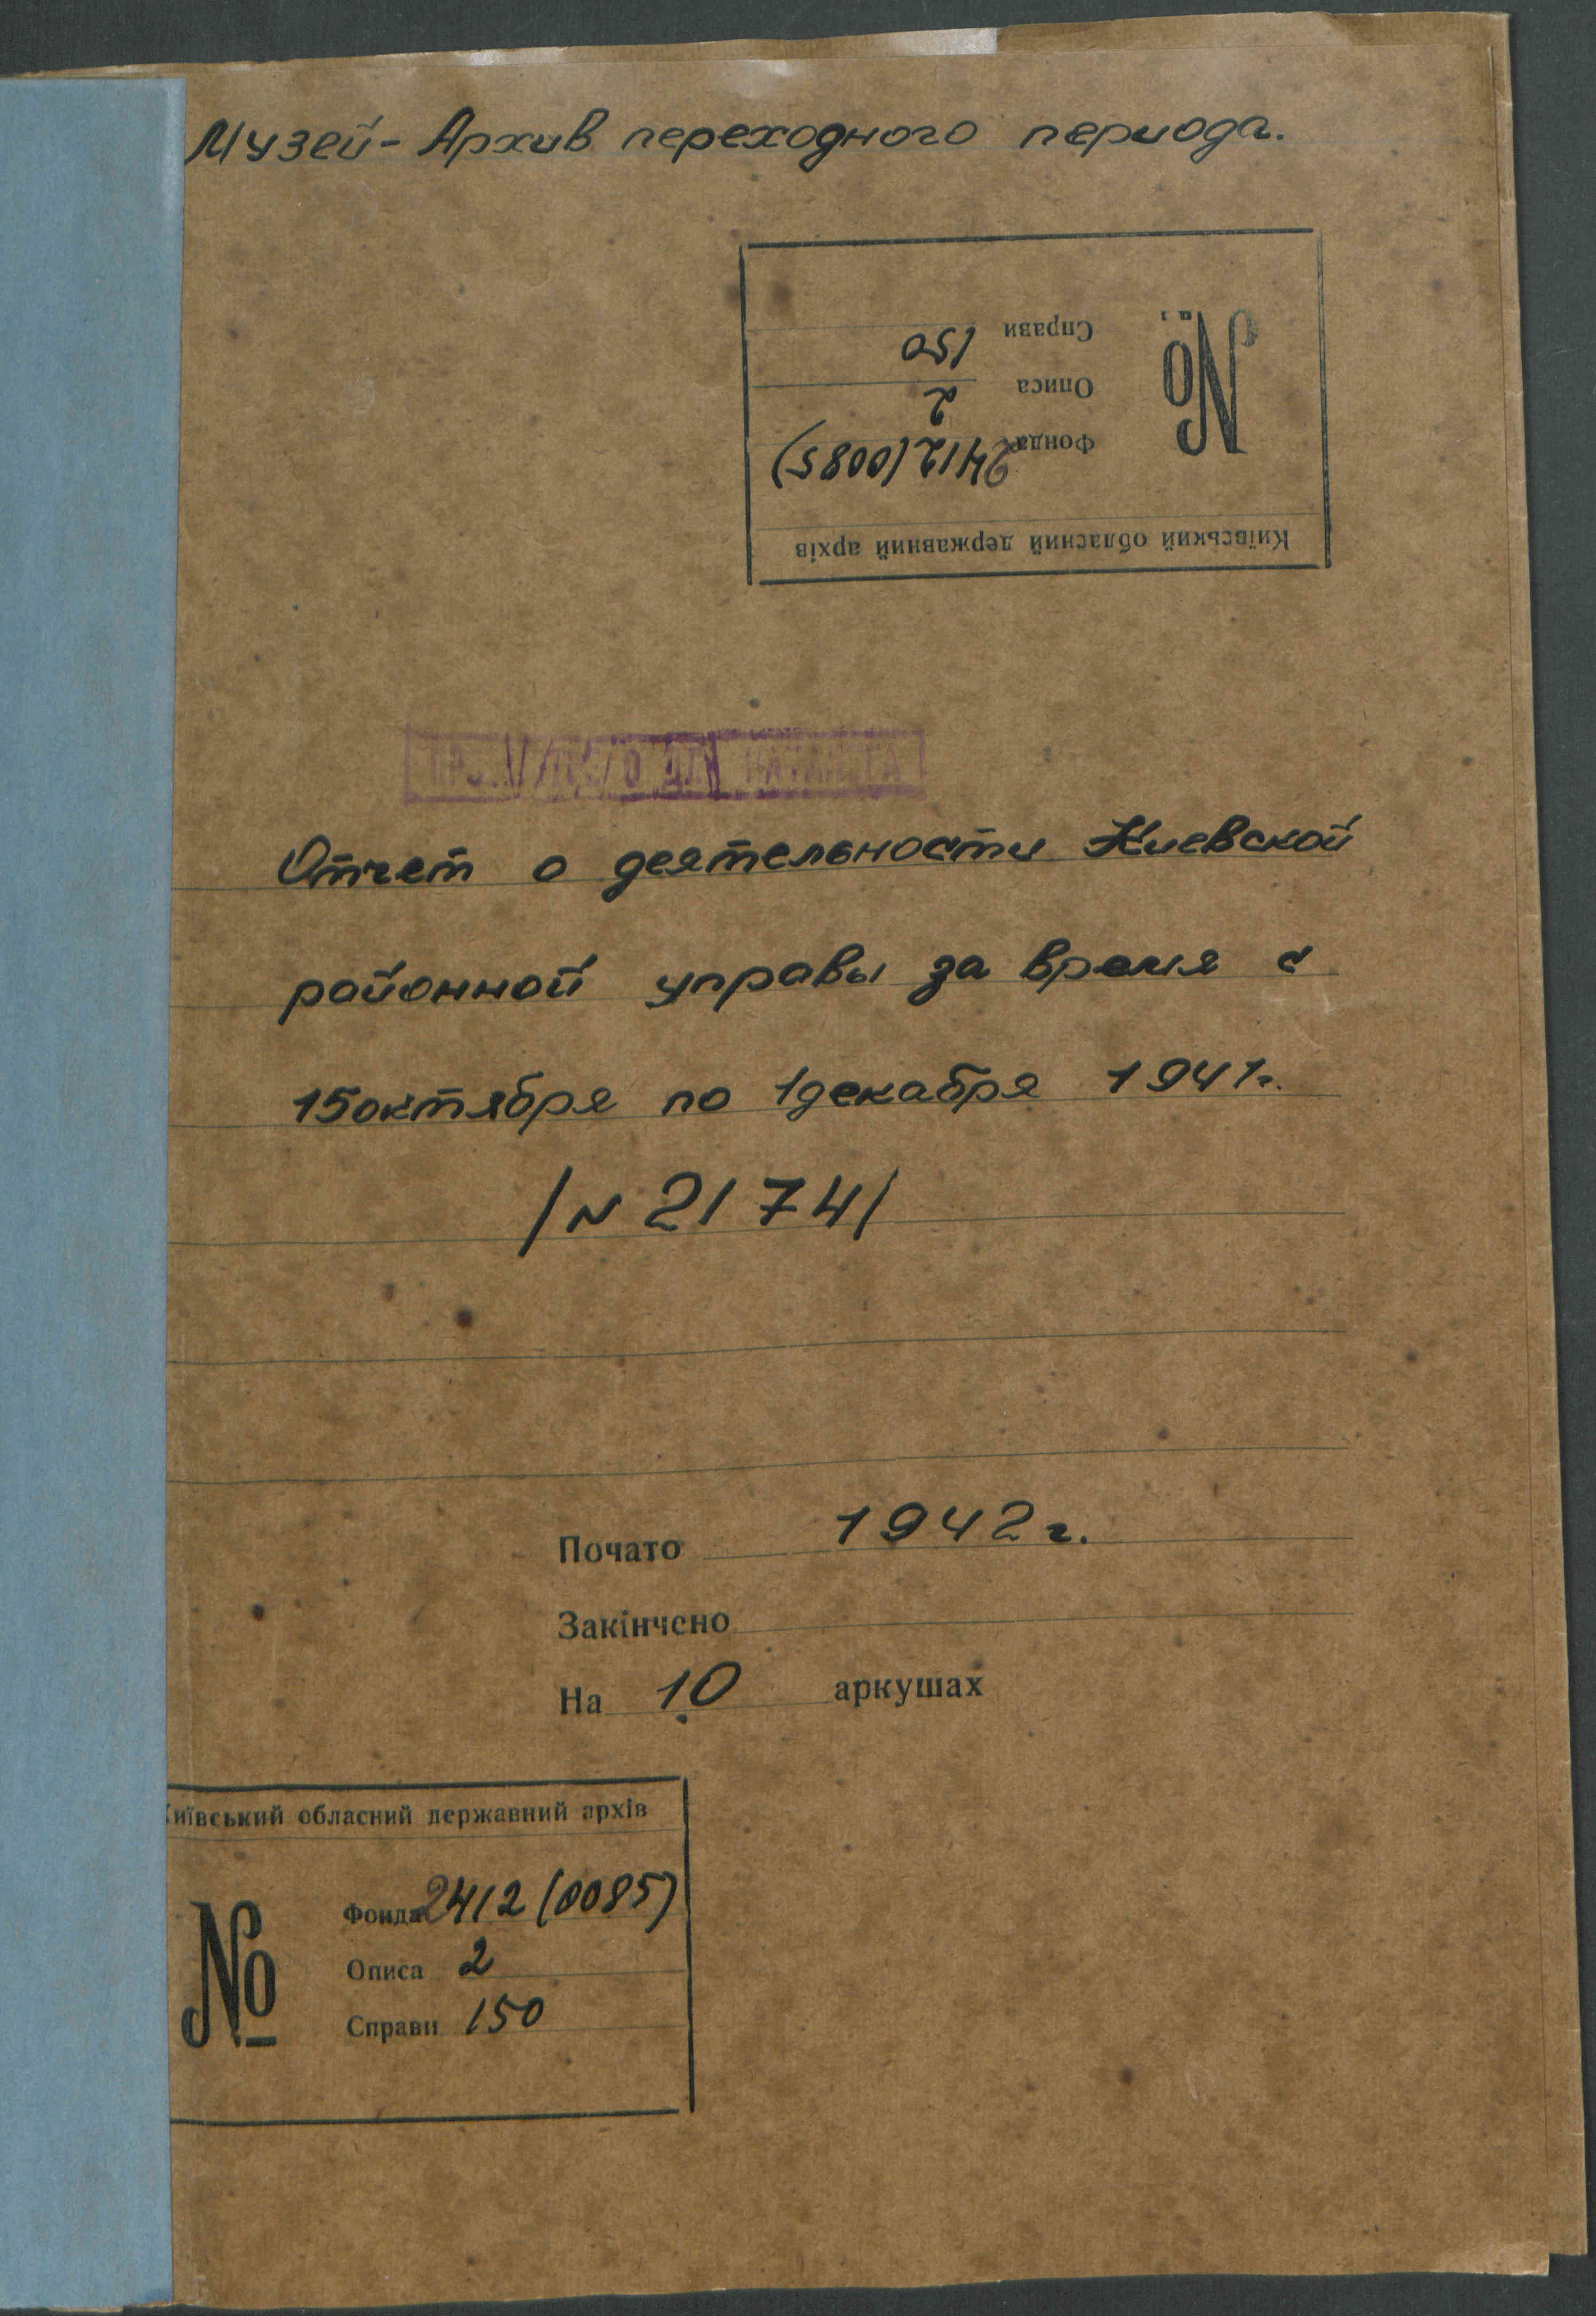 Музей-Архив переходного периода.
Київський обласний державний архів
№
Фонда 2412 (0085)
Описа 2
Справи 150
Отчет о деятельности Киевской
районной управы за время с
15 октября по 1 декабря 1941 г.
/N 2174/
Почато 1942 г.
Закінчено
На 10 аркушах
иївський обласний державний архів
№
Фонда 2412 (0085)
Описа 2
Справи 150